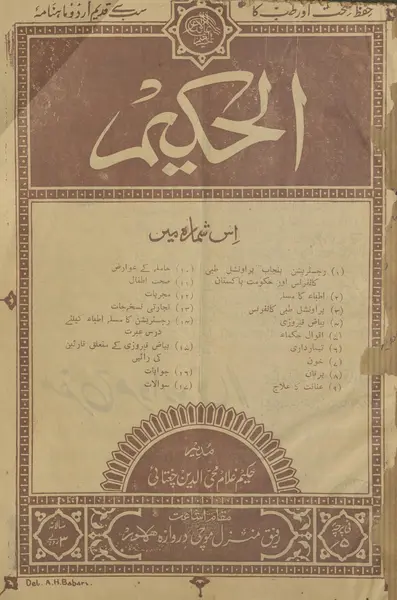 حفظ صحت اور طب کا
سب سے قدیم اردو ماہنامہ
الحکیم
اس شمارہ میں
(۱) رجسٹریشن پنجاب پراونشل طبی
کانفرنس اور حکومت پاکستان
(۲) اطباء کا مسئلہ
(۳) پراونشل طبی کانفرنس
(۴) بیاض فیروزی
(۵) اقوال حکماء
(۶) تیمارداری
(۷) خون
(۸) یرقان
(۹) علاج
(۱۰) حاملہ کے عوارض
(۱۱) صحت اطفال
(۱۲) مجربات
(۱۳) تجارتی نسخہ جات
(۱۴) رجسٹریشن کا مسئلہ اطباء کیلئے
درس عبرت
(۱۵) بیاض فیروزی کے متعلق قارئین
کی رائیں
(۱۶) جوابات
(۱۷) سوالات
مدیر
حکیم غلام محی الدین چغتائی
مقام اشاعت
رفیق منزل موچی دروازہ لاہور
فی پرچہ
۵
سالانہ
۳ روپے
Del. A.H.Babari.